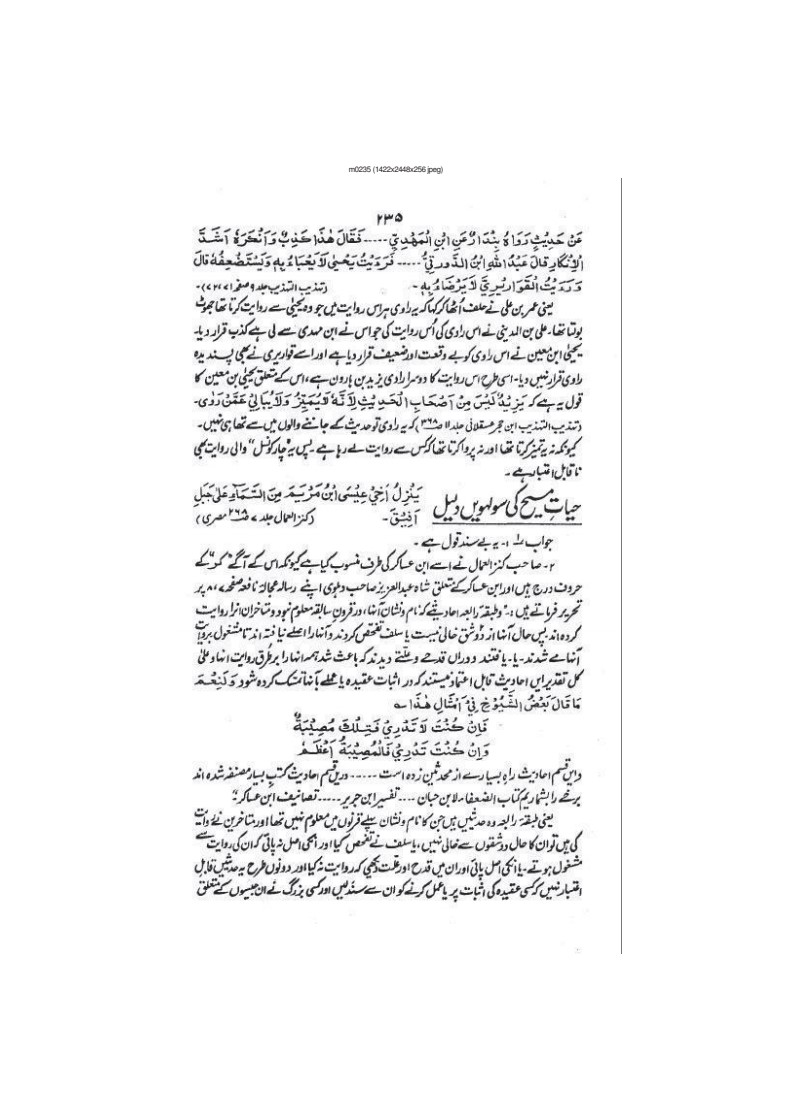 m0235 (1422x2448x256 jpeg)
۲۳۵
عَنْ حَدِيْثٍ رَوَاهُ بِنْدَارٌ عَنِ ابْنِ الْمَهْدِيِّ ..... فَقَالَ هٰذَا كَذِبٌ وَاَنْكَرَهٗ اَشَدَّ
الْاِنْكَارِ قَالَ عَبْدُ اللهِ ابْنُ الدَّوْرَقِيُّ ..... فَرَءَيْتُ يَحْيٰى لَا يَعْبَاءُ بِهٖ وَيَسْتَضْعِفُهٗ قَالَ
وَرَءَيْتُ الْقَوَارِيْرِيَّ لَا يَرْضَاءُ بِهٖ - (تہذیب التہذیب جلد ۹ صفحہ ۷۱، ۷۲)-
یعنی عمر بن علی نے حلف اُٹھا کر کہا کہ یہ راوی ہر اس روایت میں جو وہ یحیٰی سے روایت کرتا تھا جھوٹ
بولتا تھا۔ علی بن المدینی نے اس راوی کی اُس روایت کی جو اس نے ابن مہدی سے لی ہے کذب قرار دیا۔
یحییٰ ابن معین نے اس راوی کو بے وقعت اور ضعیف قرار دیا ہے اور اسے قواریری نے بھی پسندیدہ
راوی قرار نہیں دیا۔ اسی طرح اس روایت کا دوسرا راوی یزید بن ہارون ہے، اس کے متعلق یحیٰی بن معین کا
قول یہ ہے کہ يَزِيْدُ لَيْسَ مِنْ اَصْحَابِ الْحَدِيْثِ لِاَنَّهٗ لَا يُمَيِّزُ وَلَا يُبَالِيْ عَمَّنْ رَوٰى۔
(تہذیب التہذیب ابن حجر عسقلانی جلد ۱۱ ص۳۶۸) کہ یہ راوی تو حدیث کے جاننے والوں میں سے تھا ہی نہیں۔
کیونکہ نہ یہ تمیز کرتا تھا اور نہ پروا کرتا تھا کہ کس سے روایت لے رہا ہے۔ پس یہ "چار کونسل" والی روایت بھی
ناقابل اعتبار ہے۔
حیاتِ مسیح کی سولہویں دلیل
يَنْزِلُ اَخِيْ عِيْسَى ابْنُ مَرْيَمَ مِنَ السَّمَآءِ عَلٰى جَبَلِ
اَفِيْقَ - (کنز العمال جلد ۷ ص۲۶۸ مصری)
جواب ۱ :- یہ بے سند قول ہے۔
۲۔ صاحب کنز العمال نے اسے ابن عساکر کی طرف منسوب کیا ہے کیونکہ اس کے آگے "کر" کے
حروف درج ہیں اور ابن عساکر کے متعلق شاہ عبدالعزیز صاحب دہلوی اپنے رسالہ عجالہ نافعہ صفحہ ۷، ۸ پر
تحریر فرماتے ہیں :۔ "وطبقہ رابعہ احادیثے کہ نام و نشان آنہا در قرون سابقہ معلوم نبود و متاخران انرا روایت
کردہ اند پس حال آنہا از دو شق خالی نیست یا سلف تفحص کردند و آنہا را اصلے نیافتہ اند تا مشغول بروایت
آنہا مے شدند۔ یا۔ یافتند و دراں قدحے و علتے دیدند کہ باعث شد ہمہ انہا را بر طرق روایت انہا و علیٰ
کل تقدیر ایں احادیث قابل اعتماد نیستند کہ در اثبات عقیدہ یا عملے بآنہا تمسک کردہ شود وَلَنِعْمَ
مَا قَالَ بَعْضُ الشُّيُوْخِ فِيْ اَمْثَالِ هٰذَا ؎
فَاِنْ كُنْتَ لَا تَدْرِيْ فَتِلْكَ مُصِيْبَةٌ
وَاِنْ كُنْتَ تَدْرِيْ فَالْمُصِيْبَةُ اَعْظَمُ
و ایں قسم احادیث راہ بسیارے از محدثین زدہ است ..... دریں قسم احادیث کتب بسیار مصنفہ شدہ اند
برخے را بشماریم کتاب الضعفاء لابن حبان .... تفسیر ابن جریر ..... تصانیف ابن عساکر"۔
یعنی طبقہ رابعہ وہ حدیثیں ہیں جن کا نام و نشان پہلے قرنوں میں معلوم نہیں تھا اور متاخرین نے روایت
کی ہیں تو ان کا حال دو شقوں سے خالی نہیں، یا سلف نے تفحص کیا اور انکی اصل نہ پائی کہ ان کی روایت سے
مشغول ہوتے۔ یا انکی اصل پائی اور ان میں قدح اور علّت دیکھی کہ روایت نہ کیا اور دونوں طرح یہ حدیثیں قابلِ
اعتبار نہیں کہ کسی عقیدہ کی اثبات پر یا عمل کرنے کو ان سے سند لیں اور کسی بزرگ نے ان جیسوں کے متعلق